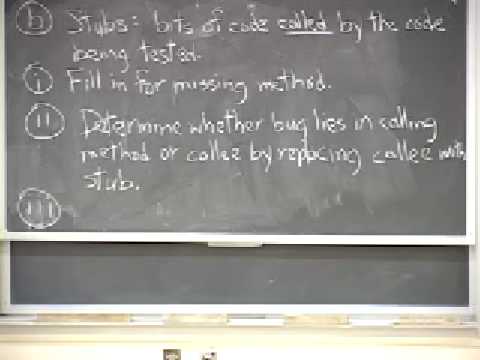 (b) Stubs: bits of code called by the code
being tested.
(i) Fill in for missing method.
(ii) Determine whether bug lies in calling
method or callee by replacing callee with
stub.
(iii)